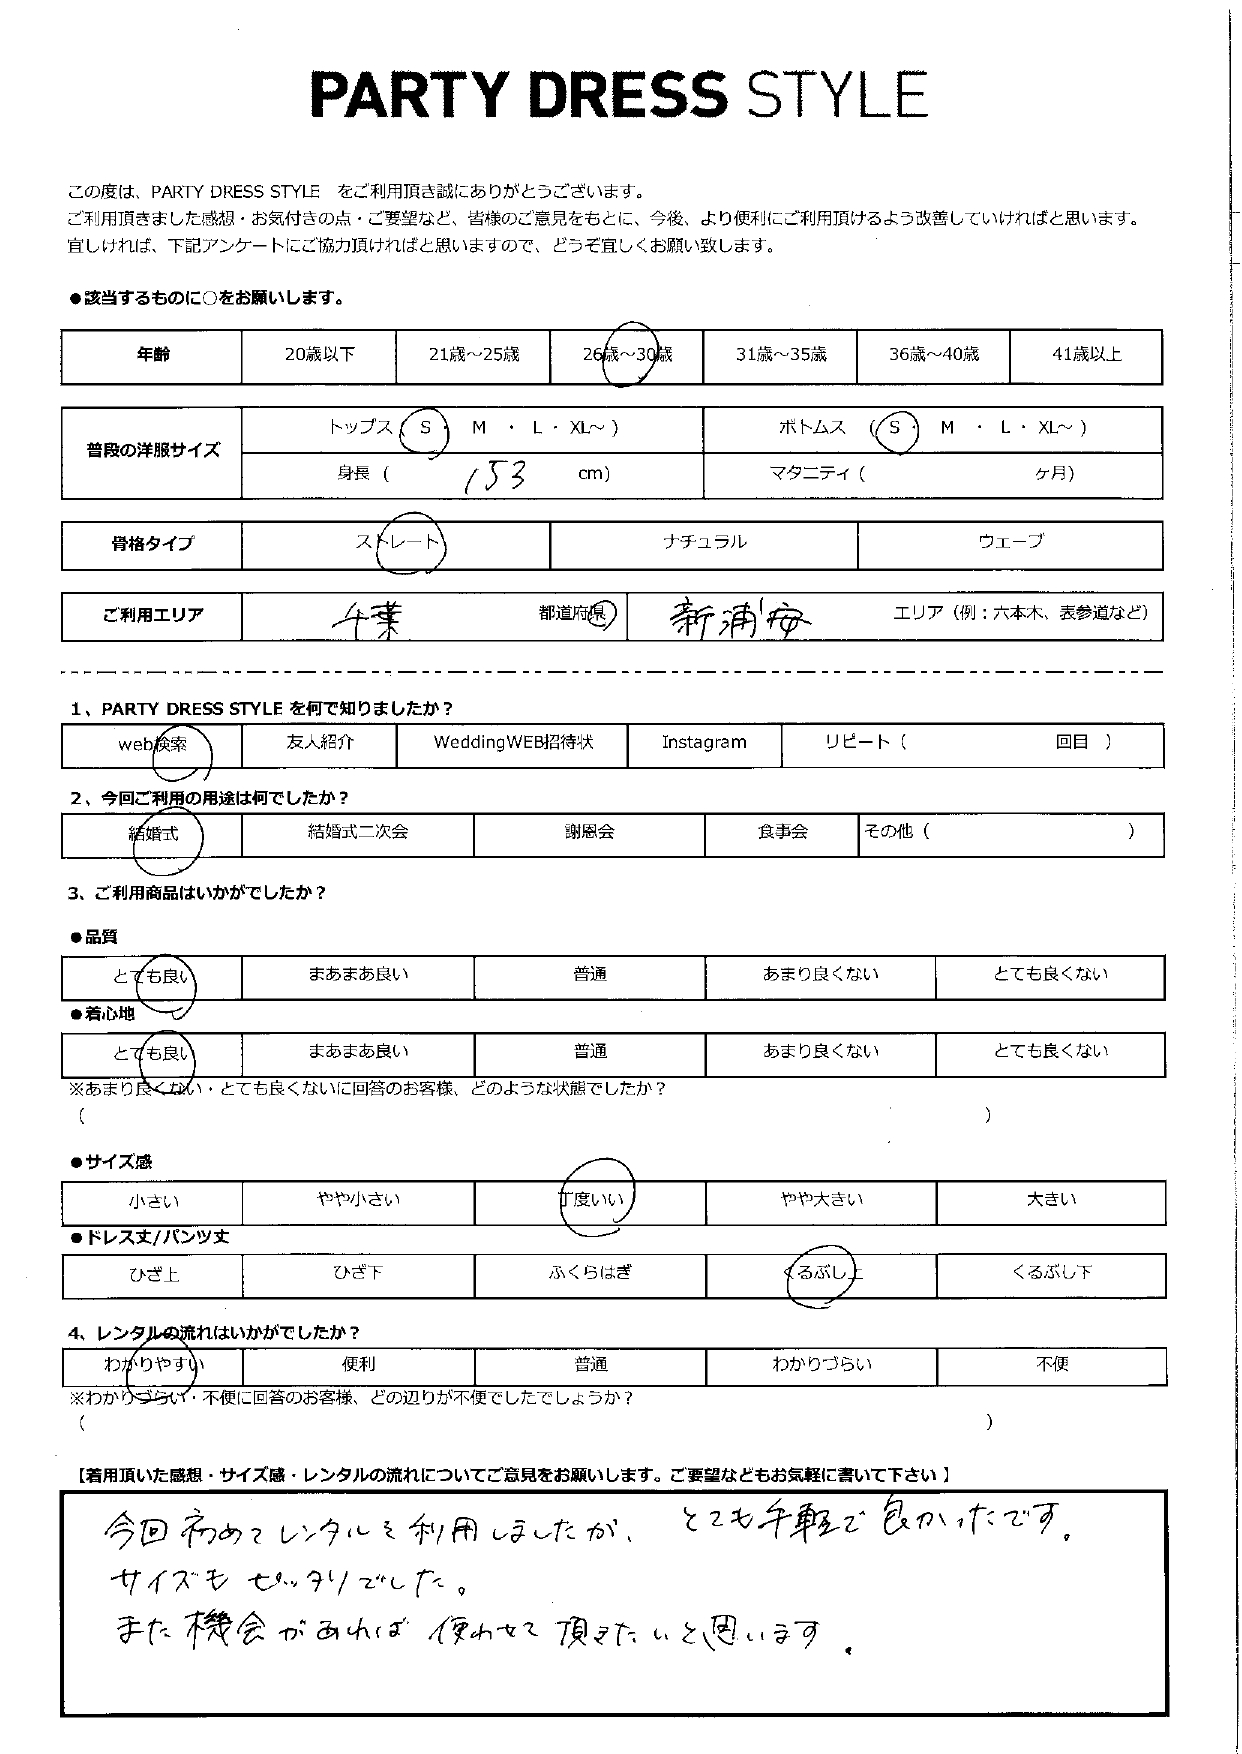 PARTY DRESS STYLE
この度は、PARTY DRESS STYLE　をご利用頂き誠にありがとうございます。
ご利用頂きました感想・お気付きの点・ご要望など、皆様のご意見をもとに、今後、より便利にご利用頂けるよう改善していければと思います。
宜しければ、下記アンケートにご協力頂ければと思いますので、どうぞ宜しくお願い致します。
●該当するものに○をお願いします。
年齢 20歳以下 21歳～25歳 26歳～30歳 31歳～35歳 36歳～40歳 41歳以上
普段の洋服サイズ トップス（ S ・ M ・ L ・ XL～ ） ボトムス （ S ・ M ・ L ・ XL～ ）
身長（ 153 cm） マタニティ（ ヶ月）
骨格タイプ ストレート ナチュラル ウェーブ
ご利用エリア 千葉 都道府県 新浦安 エリア（例：六本木、表参道など）
1、PARTY DRESS STYLE を何で知りましたか？
web検索 友人紹介 WeddingWEB招待状 Instagram リピート（ 回目 ）
2、今回ご利用の用途は何でしたか？
結婚式 結婚式二次会 謝恩会 食事会 その他（ ）
3、ご利用商品はいかがでしたか？
●品質
とても良い まあまあ良い 普通 あまり良くない とても良くない
●着心地
とても良い まあまあ良い 普通 あまり良くない とても良くない
※あまり良くない・とても良くないに回答のお客様、どのような状態でしたか？
（ ）
●サイズ感
小さい やや小さい 丁度いい やや大きい 大きい
●ドレス丈/パンツ丈
ひざ上 ひざ下 ふくらはぎ くるぶし上 くるぶし下
4、レンタルの流れはいかがでしたか？
わかりやすい 便利 普通 わかりづらい 不便
※わかりづらい・不便に回答のお客様、どの辺りが不便でしたでしょうか？
（ ）
【着用頂いた感想・サイズ感・レンタルの流れについてご意見をお願いします。ご要望などもお気軽に書いて下さい 】
今回初めてレンタルを利用しましたが、 とても手軽で良かったです。
サイズもピッタリでした。
また機会があれば使わせて頂きたいと思います。